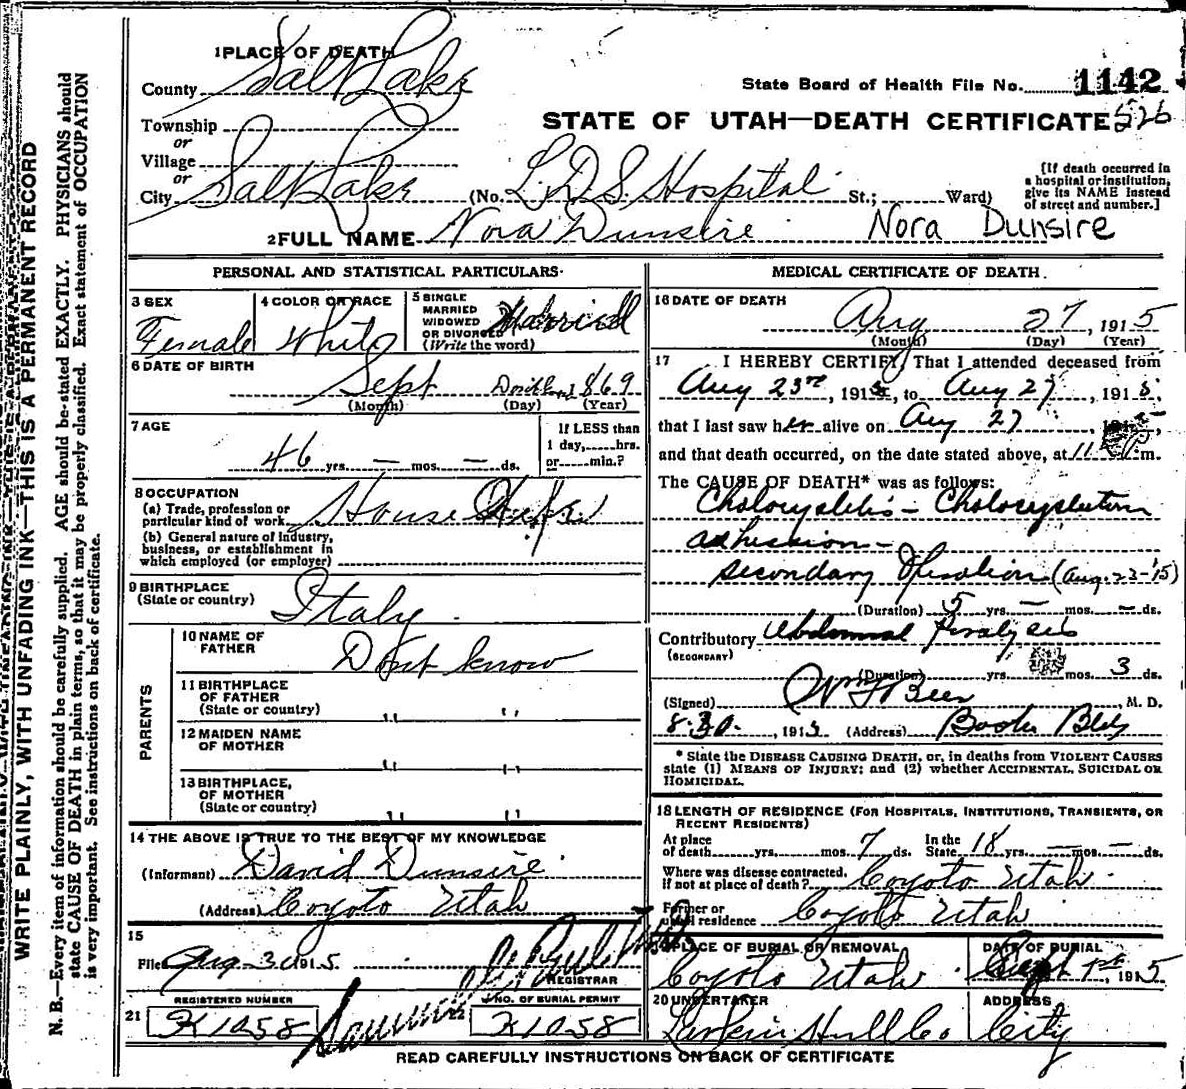 WRITE PLAINLY, WITH UNFADING INK—THIS IS A PERMANENT RECORD
N. B.—Every item of information should be carefully supplied. AGE should be stated EXACTLY. PHYSICIANS should
state CAUSE OF DEATH in plain terms, so that it may be properly classified. Exact statement of OCCUPATION
is very important. See instructions on back of certificate.
1 PLACE OF DEATH
County Salt Lake
State Board of Health File No. 1142
526
STATE OF UTAH—DEATH CERTIFICATE
Township
or
Village
or
City Salt Lake (No. L.D.S. Hospital St.; Ward)
[If death occurred in
a hospital or institution,
give its NAME instead
of street and number.]
2 FULL NAME Nora Dunsire Nora Dunsire
PERSONAL AND STATISTICAL PARTICULARS
3 SEX
Female
4 COLOR OR RACE
White
5 SINGLE
MARRIED
WIDOWED
OR DIVORCED
(Write the word)
Married
6 DATE OF BIRTH
Sept 1869
(Month) (Day) (Year)
7 AGE
46 yrs. — mos. — ds.
If LESS than
1 day, hrs.
or min.?
8 OCCUPATION
(a) Trade, profession or
particular kind of work House Wife
(b) General nature of industry,
business, or establishment in
which employed (or employer)
9 BIRTHPLACE
(State or country)
Italy
PARENTS
10 NAME OF
FATHER
Dont know
11 BIRTHPLACE
OF FATHER
(State or country)
" "
12 MAIDEN NAME
OF MOTHER
" "
13 BIRTHPLACE,
OF MOTHER
(State or country)
" "
14 THE ABOVE IS TRUE TO THE BEST OF MY KNOWLEDGE
(Informant) David Dunsire
(Address) Coyoto Utah
15
Filed Aug 30 1915
REGISTRAR
21
REGISTERED NUMBER
K1058
NO. OF BURIAL PERMIT
K1058
MEDICAL CERTIFICATE OF DEATH.
16 DATE OF DEATH
Aug 27, 1915
(Month) (Day) (Year)
17 I HEREBY CERTIFY, That I attended deceased from
Aug 23rd, 1915, to Aug 27, 1915,
that I last saw her alive on Aug 27,
and that death occurred, on the date stated above, at 11 P.m.
The CAUSE OF DEATH* was as follows:
adhesion—
secondary Operation (Aug. 23-'15)
(Duration) 5 yrs. — mos. — ds.
Contributory Abdominal Paralysis
(SECONDARY)
(Duration) yrs. mos. 3 ds.
(Signed) Wm F Beer, M. D.
8-30, 1915 (Address) Boston Bldg
* State the DISEASE CAUSING DEATH, or, in deaths from VIOLENT CAUSES
state (1) MEANS OF INJURY; and (2) whether ACCIDENTAL, SUICIDAL OR
HOMICIDAL.
18 LENGTH OF RESIDENCE (FOR HOSPITALS, INSTITUTIONS, TRANSIENTS, OR
RECENT RESIDENTS)
At place
of death yrs. mos. 7 ds. In the State 18 yrs. — mos. — ds.
Where was disease contracted,
if not at place of death? Coyoto Utah.
Former or
usual residence Coyoto Utah
PLACE OF BURIAL OR REMOVAL
Coyoto Utah
DATE OF BURIAL
Sept 1st, 1915
20 UNDERTAKER
Larkin Hull Co
ADDRESS
City
READ CAREFULLY INSTRUCTIONS ON BACK OF CERTIFICATE